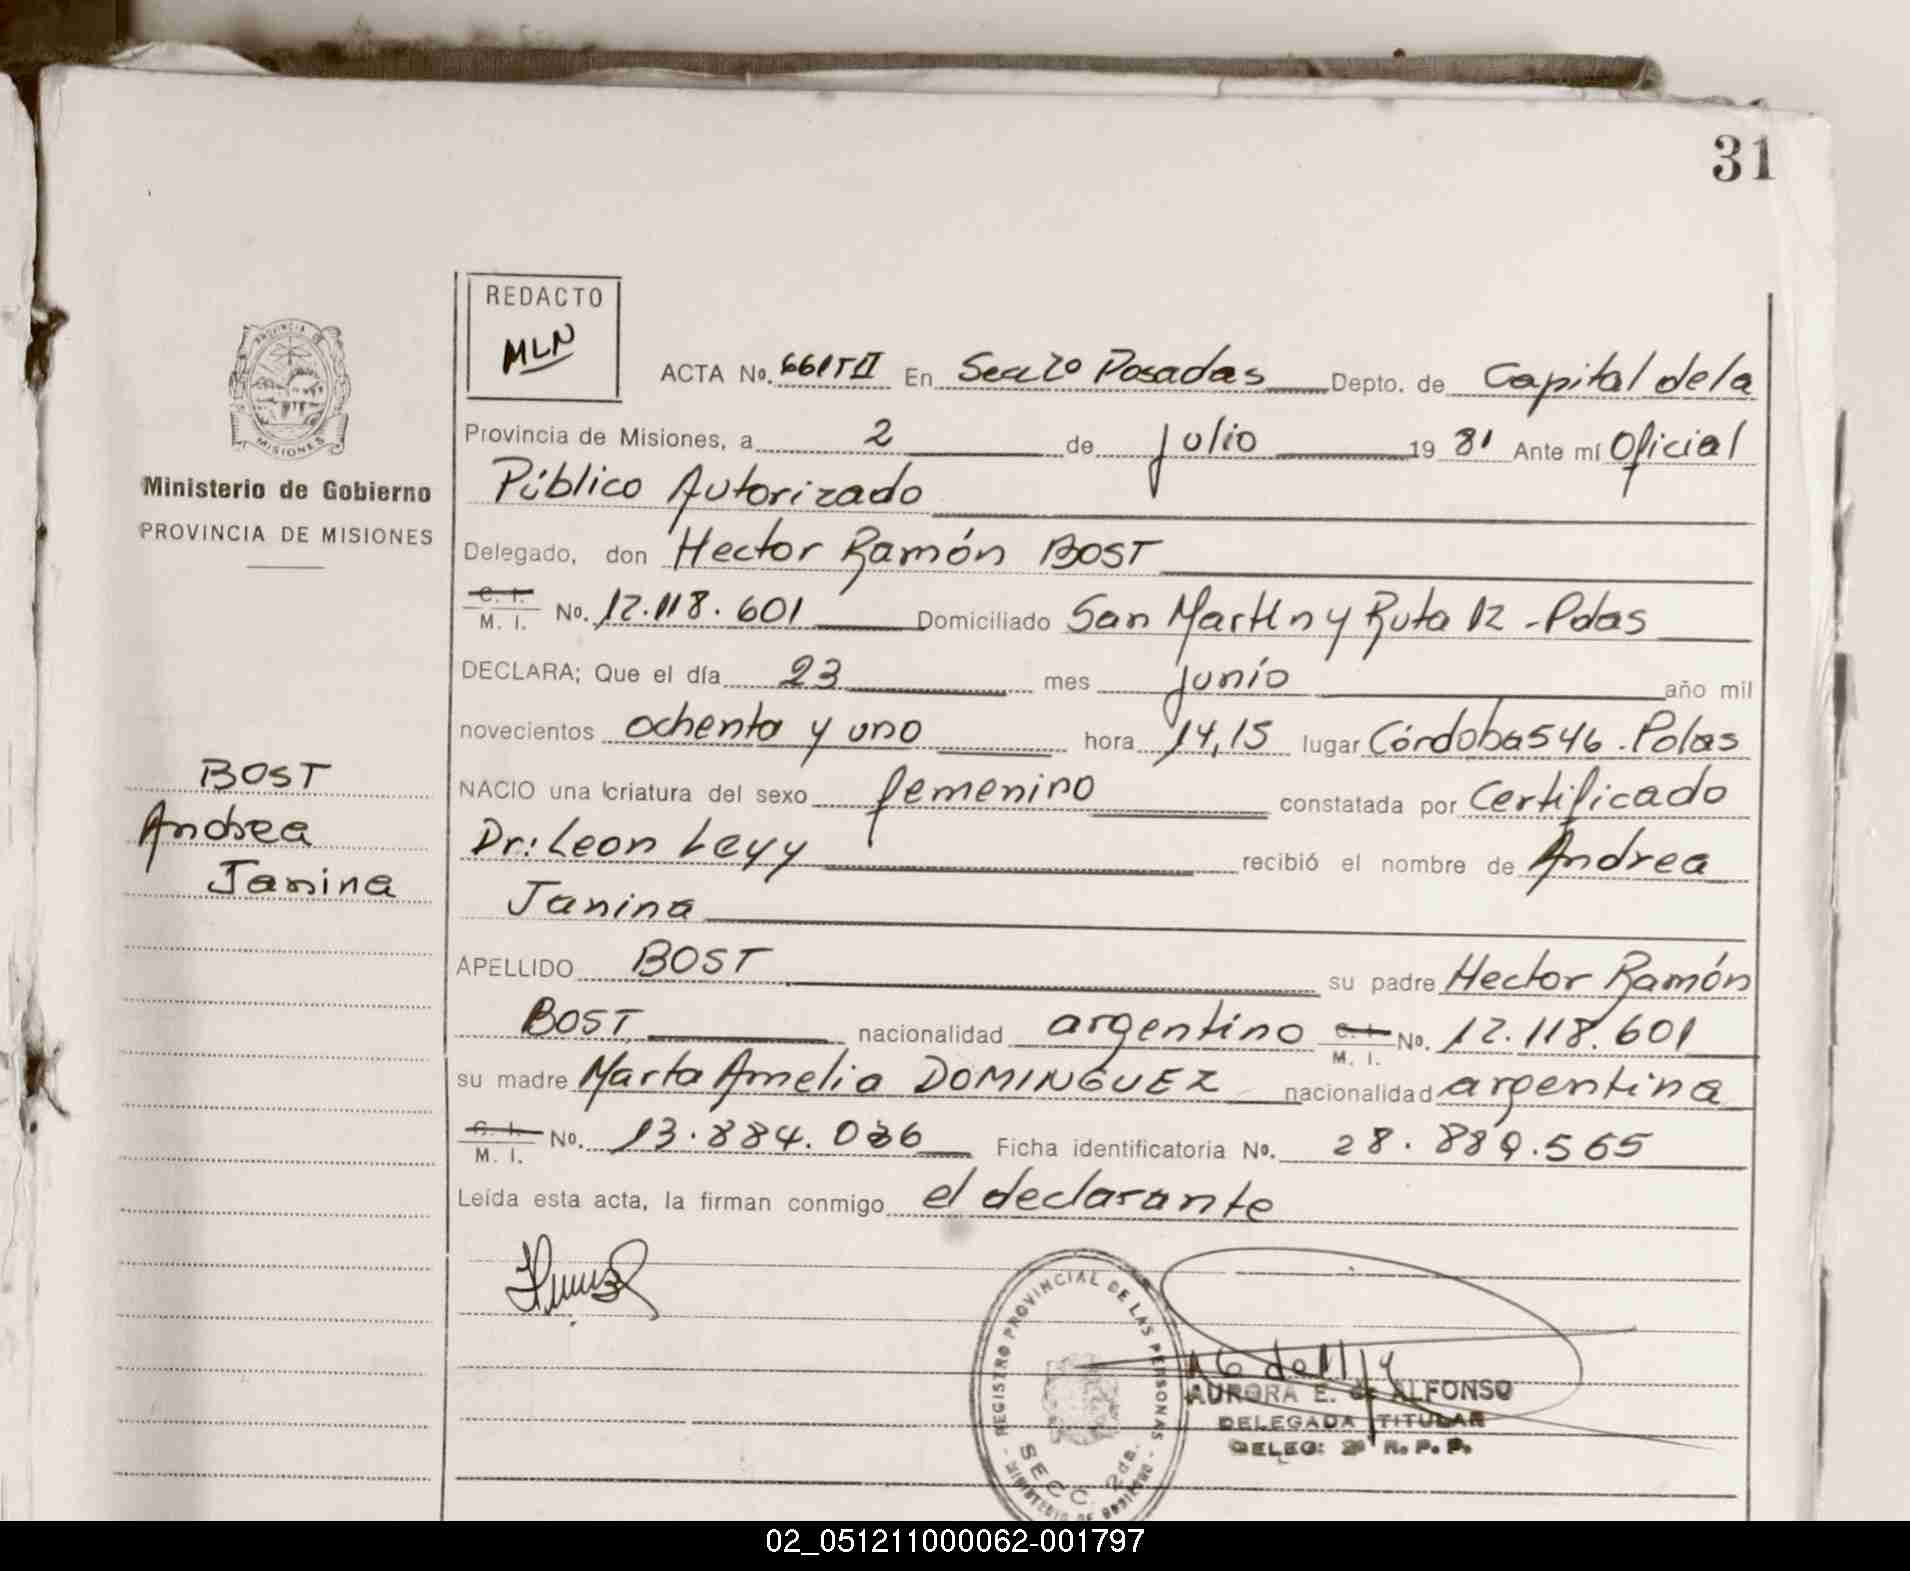 31
REDACTO
MLN
PROVINCIA DE
MISIONES
Ministerio de Gobierno
PROVINCIA DE MISIONES
BOST
Andrea
Janina
ACTA No. 661TII En Secc 2º Posadas Depto. de Capital de la
Provincia de Misiones, a 2 de julio 1981 Ante mí Oficial
Público Autorizado
Delegado, don Hector Ramón BOST
C. I. M. I. No. 12.118.601 Domiciliado San Martín y Ruta 12 - Pdas
DECLARA; Que el día 23 mes junio año mil
novecientos ochenta y uno hora 14,15 lugar Córdoba 546. Pdas
NACIO una criatura del sexo femenino constatada por Certificado
Dr: Leon Levy recibió el nombre de Andrea
Janina
APELLIDO BOST su padre Hector Ramón
BOST nacionalidad argentino C. I. M. I. No. 12.118.601
su madre Marta Amelia DOMINGUEZ nacionalidad argentina
C. I. M. I. No. 13.884.036 Ficha identificatoria No. 28.889.565
Leída esta acta, la firman conmigo el declarante
REGISTRO PROVINCIAL DE LAS PERSONAS
SECC. 2da.
MINISTERIO DE GOBIERNO
AURORA E. de ALFONSO
DELEGADA TITULAR
DELEG: 2ª R. P. P.
02_051211000062-001797